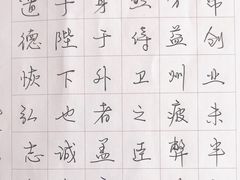 创业未半
益州疲弊
侍卫之臣
身于外者盖
于陛下也诚
遗德恢弘志